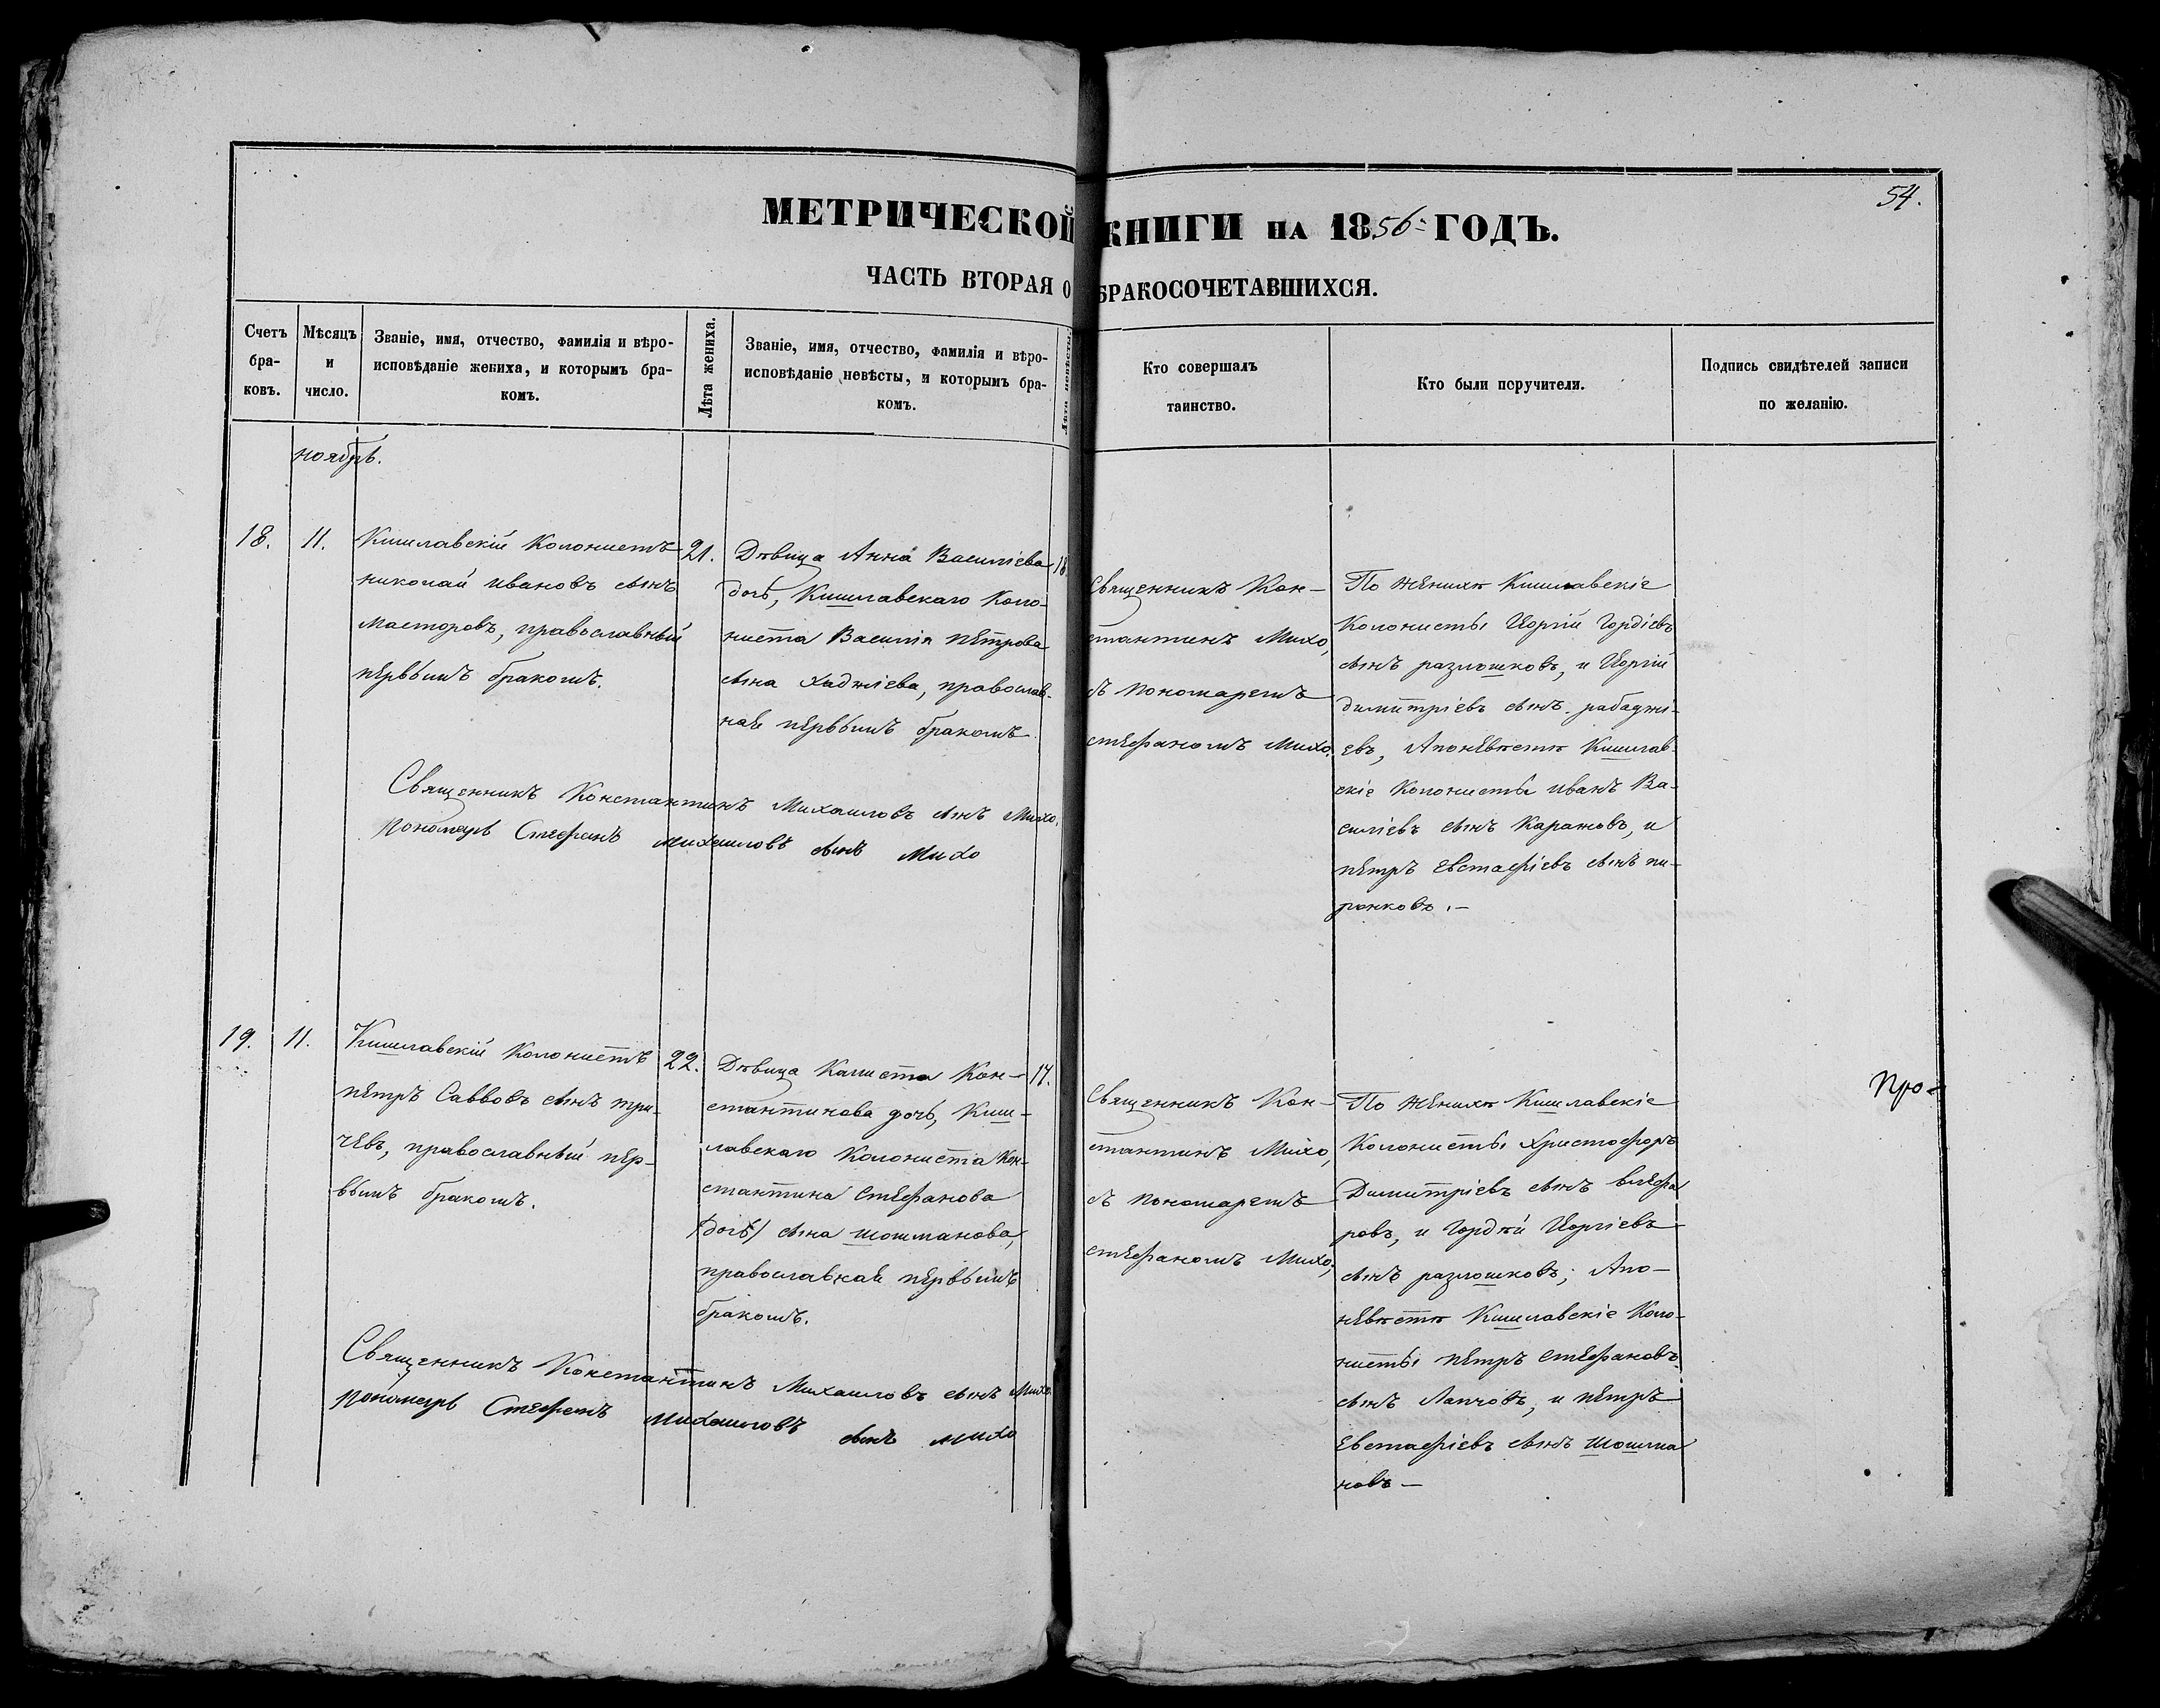 54.
МЕТРИЧЕСКОЙ КНИГИ НА 1856 ГОДЪ.
ЧАСТЬ ВТОРАЯ О БРАКОСОЧЕТАВШИХСЯ.
Счетъ
бра-
ковъ.
Мѣсяцъ
и
число.
Званіе, имя, отчество, фамилія и вѣро-
исповѣданіе жениха, и которымъ бра-
комъ.
Лѣта жениха.
Званіе, имя, отчество, фамилія и вѣро-
исповѣданіе невѣсты, и которымъ бра-
комъ.
Лѣта невѣсты.
Кто совершалъ
таинство.
Кто были поручители.
Подпись свидѣтелей записи
по желанію.
ноябрь.
18.
11.
Кишлавскій Колонистъ
николай ивановъ сынъ
Масторовъ, православный
первымъ бракомъ.
21.
Дѣвица Анна Василіева
дочь, Кишлавскаго Коло-
ниста Василія Петрова
сына Хаджіева, православ-
ная первымъ бракомъ
18
Священникъ Кон-
стантинъ Михо,
съ пономаремъ
стефаномъ Михо.
По женихѣ Кишлавскіе
Колонисты Георгій Гордіевъ
сынъ разлошковъ, и Георгій
димитріевъ сынъ рабаджі-
евъ, Апоневѣстѣ Кишлав-
скіе Колонисты иванъ Ва-
силіевъ сынъ Карановъ, и
петръ Евстафіевъ сынъ пи-
ронковъ.—
Священникъ Константинъ Михаиловъ сынъ Михо.
Пономарь Стефанъ михаиловъ сынъ Михо
19.
11.
Кишлавскій Колонистъ
петръ Саввовъ сынъ три-
чевъ, православный пер-
вымъ бракомъ.
22.
Дѣвица Калиста Кон-
стантинова дочь, Киш-
лавскаго Колониста Кон-
стантина Стефанова
/дочь/ сына шошманова,
православная первымъ
бракомъ.
17.
Священникъ Кон-
стантинъ Михо,
съ пономаремъ
стефаномъ Михо;
По женихѣ Кишлавскіе
Колонисты Христофоръ
Димитріевъ сынъ
ровъ, и Гордѣй Георгіевъ
сынъ разлошковъ; Апо-
невѣстѣ Кишлавскіе Коло-
нисты петръ стефановъ
сынъ Лапчовъ, и петръ
Евстафіевъ сынъ шошма
новъ—
Про=
Священникъ Константинъ Михаиловъ сынъ Михо.
Пономарь Стефанъ михаиловъ сынъ михо